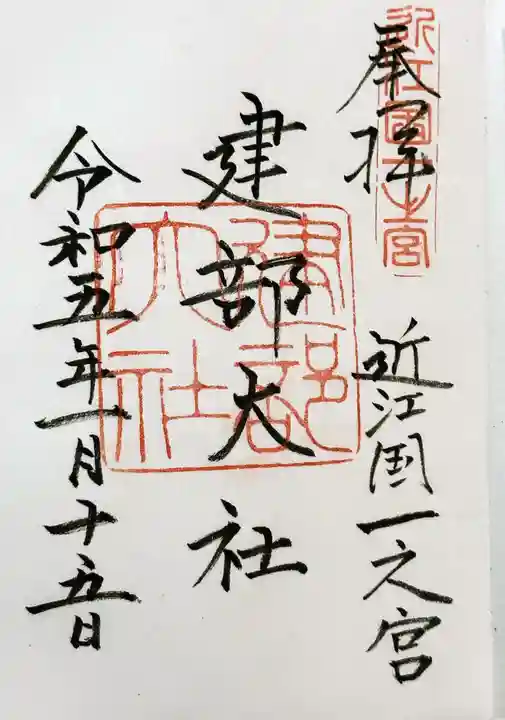 奉拝
近江国一之宮
近江國一之宮
建部大社
建部大社
令和五年一月十五日